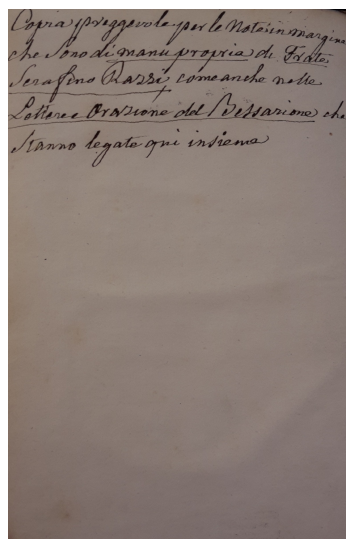 Copia preggevole per le Note in margine
che sono di manu propria di Frate
Serafino Razzi come anche nelle
Lettere e Orazione del Bessarione che
stanno legate qui insieme